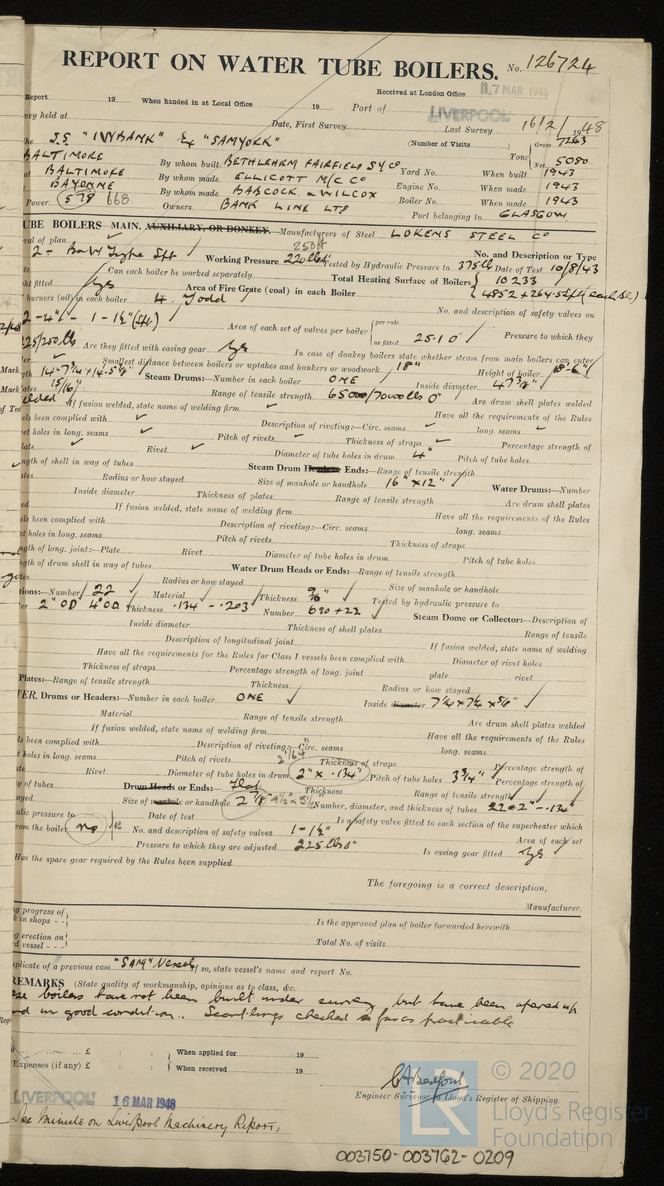 REPORT ON WATER TUBE BOILERS. No. 126724
Received at London Office 17 MAR 1948
Report 19 When handed in at Local Office 19 Port of LIVERPOOL
vey held at Date, First Survey Last Survey 16/2/1948
the S.S. "IVYBANK" Ex "SAMYORK" (Number of Visits) Gross 7263
Tons Net 5080
BALTIMORE By whom built BETHLEHEM FAIRFIELD SY Co Yard No. When built 1943
at BALTIMORE By whom made ELLICOTT M/C Co Engine No. When made 1943
BAYONNE By whom made BABCOCK & WILCOX Boiler No. When made 1943
Power 578 668 Owners BANK LINE LTD Port belonging to GLASGOW
UBE BOILERS—MAIN, AUXILIARY, OR DONKEY.—Manufacturers of Steel LUKENS STEEL Co
val of plan No. and Description or Type
2 - B&W Type Working Pressure 220 lbs Tested by Hydraulic Pressure to 375 lb Date of Test 10/8/43
te Can each boiler be worked separately Total Heating Surface of Boilers 10233
ht fitted yes Area of Fire Grate (coal) in each Boiler
burners (oil) in each boiler 4. Todd No. and description of safety valves on
2-4" - 1-1½" Area of each set of valves per boiler per rule as fitted 25.10" Pressure to which they
225/250 lb Are they fitted with easing gear yes In case of donkey boilers state whether steam from main boilers can enter
Smallest distance between boilers or uptakes and bunkers or woodwork 18" Height of boiler
Steam Drums:—Number in each boiler ONE Inside diameter
15/16" Range of tensile strength 65000/70000 lbs Are drum shell plates welded
If fusion welded, state name of welding firm Have all the requirements of the Rules
els been complied with Description of riveting:—Circ. seams long. seams
et holes in long. seams Pitch of rivets Thickness of straps Percentage strength of
late Rivet Diameter of tube holes in drum 4" Pitch of tube holes
ngth of shell in way of tubes Steam Drum Headers Ends:—Range of tensile strength
ates Radius or how stayed Size of manhole or handhole 16" x 12" Water Drums:—Number
Inside diameter Thickness of plates Range of tensile strength Are drum shell plates
ed If fusion welded, state name of welding firm Have all the requirements of the Rules
els been complied with Description of riveting:—Circ. seams long. seams
et holes in long. seams Pitch of rivets Thickness of straps
gth of long. joint:—Plate Rivet Diameter of tube holes in drum Pitch of tube holes
gth of drum shell in way of tubes Water Drum Heads or Ends:—Range of tensile strength
Radius or how stayed Size of manhole or handhole
tions:—Number 22 Material Thickness 9/16" Tested by hydraulic pressure to
er 2" OD 4" OD Thickness .134 - .203 Number 690 + 22 Steam Dome or Collector:—Description of
Inside diameter Thickness of shell plates Range of tensile
Description of longitudinal joint If fusion welded, state name of welding
Have all the requirements for the Rules for Class I vessels been complied with Diameter of rivet holes
Thickness of straps Percentage strength of long. joint plate rivet
Plates:—Range of tensile strength Thickness Radius or how stayed
TER. Drums or Headers:—Number in each boiler ONE Inside diameter 7¼ x 7¼ x 5/8"
Material Range of tensile strength Are drum shell plates welded
If fusion welded, state name of welding firm Have all the requirements of the Rules
ls been complied with Description of riveting:—Circ. seams long. seams
t holes in long. seams Pitch of rivets Thickness of straps Percentage strength of
te Rivet Diameter of tube holes in drum 2" x .134" Pitch of tube holes 3¾" Percentage strength of
y of tubes Drum Heads or Ends: Flat Thickness Range of tensile strength
ayed Size of manhole or handhole Number, diameter, and thickness of tubes 22 - 2" - .134"
ulic pressure to Date of test Is a safety valve fitted to each section of the superheater which
rom the boiler no No. and description of safety valves 1-1½" Area of each set
Pressure to which they are adjusted 225 lbs Is easing gear fitted yes
Has the spare gear required by the Rules been supplied
The foregoing is a correct description,
Manufacturer.
g progress of
k in shops - - Is the approved plan of boiler forwarded herewith
g erection on
d vessel - - - Total No. of visits
uplicate of a previous case "SAM" Vessels If so, state vessel's name and report No.
REMARKS (State quality of workmanship, opinions as to class, &c.
ese boilers have not been built under survey but have been opened up
nd in good condition. Scantlings checked as far as practicable
£ : : When applied for 19
Expenses (if any) £ : : When received 19
Engineer Surveyor to Lloyd's Register of Shipping.
LIVERPOOL 16 MAR 1948
See Minute on Liverpool Machinery Report.
© 2020
LR
Lloyd's Register
Foundation
003750-003762-0209